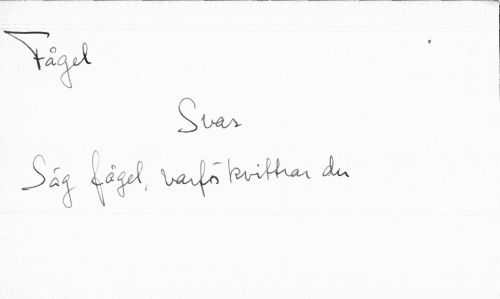 Fågel
Svar
Säg fågel, varför kvittrar du